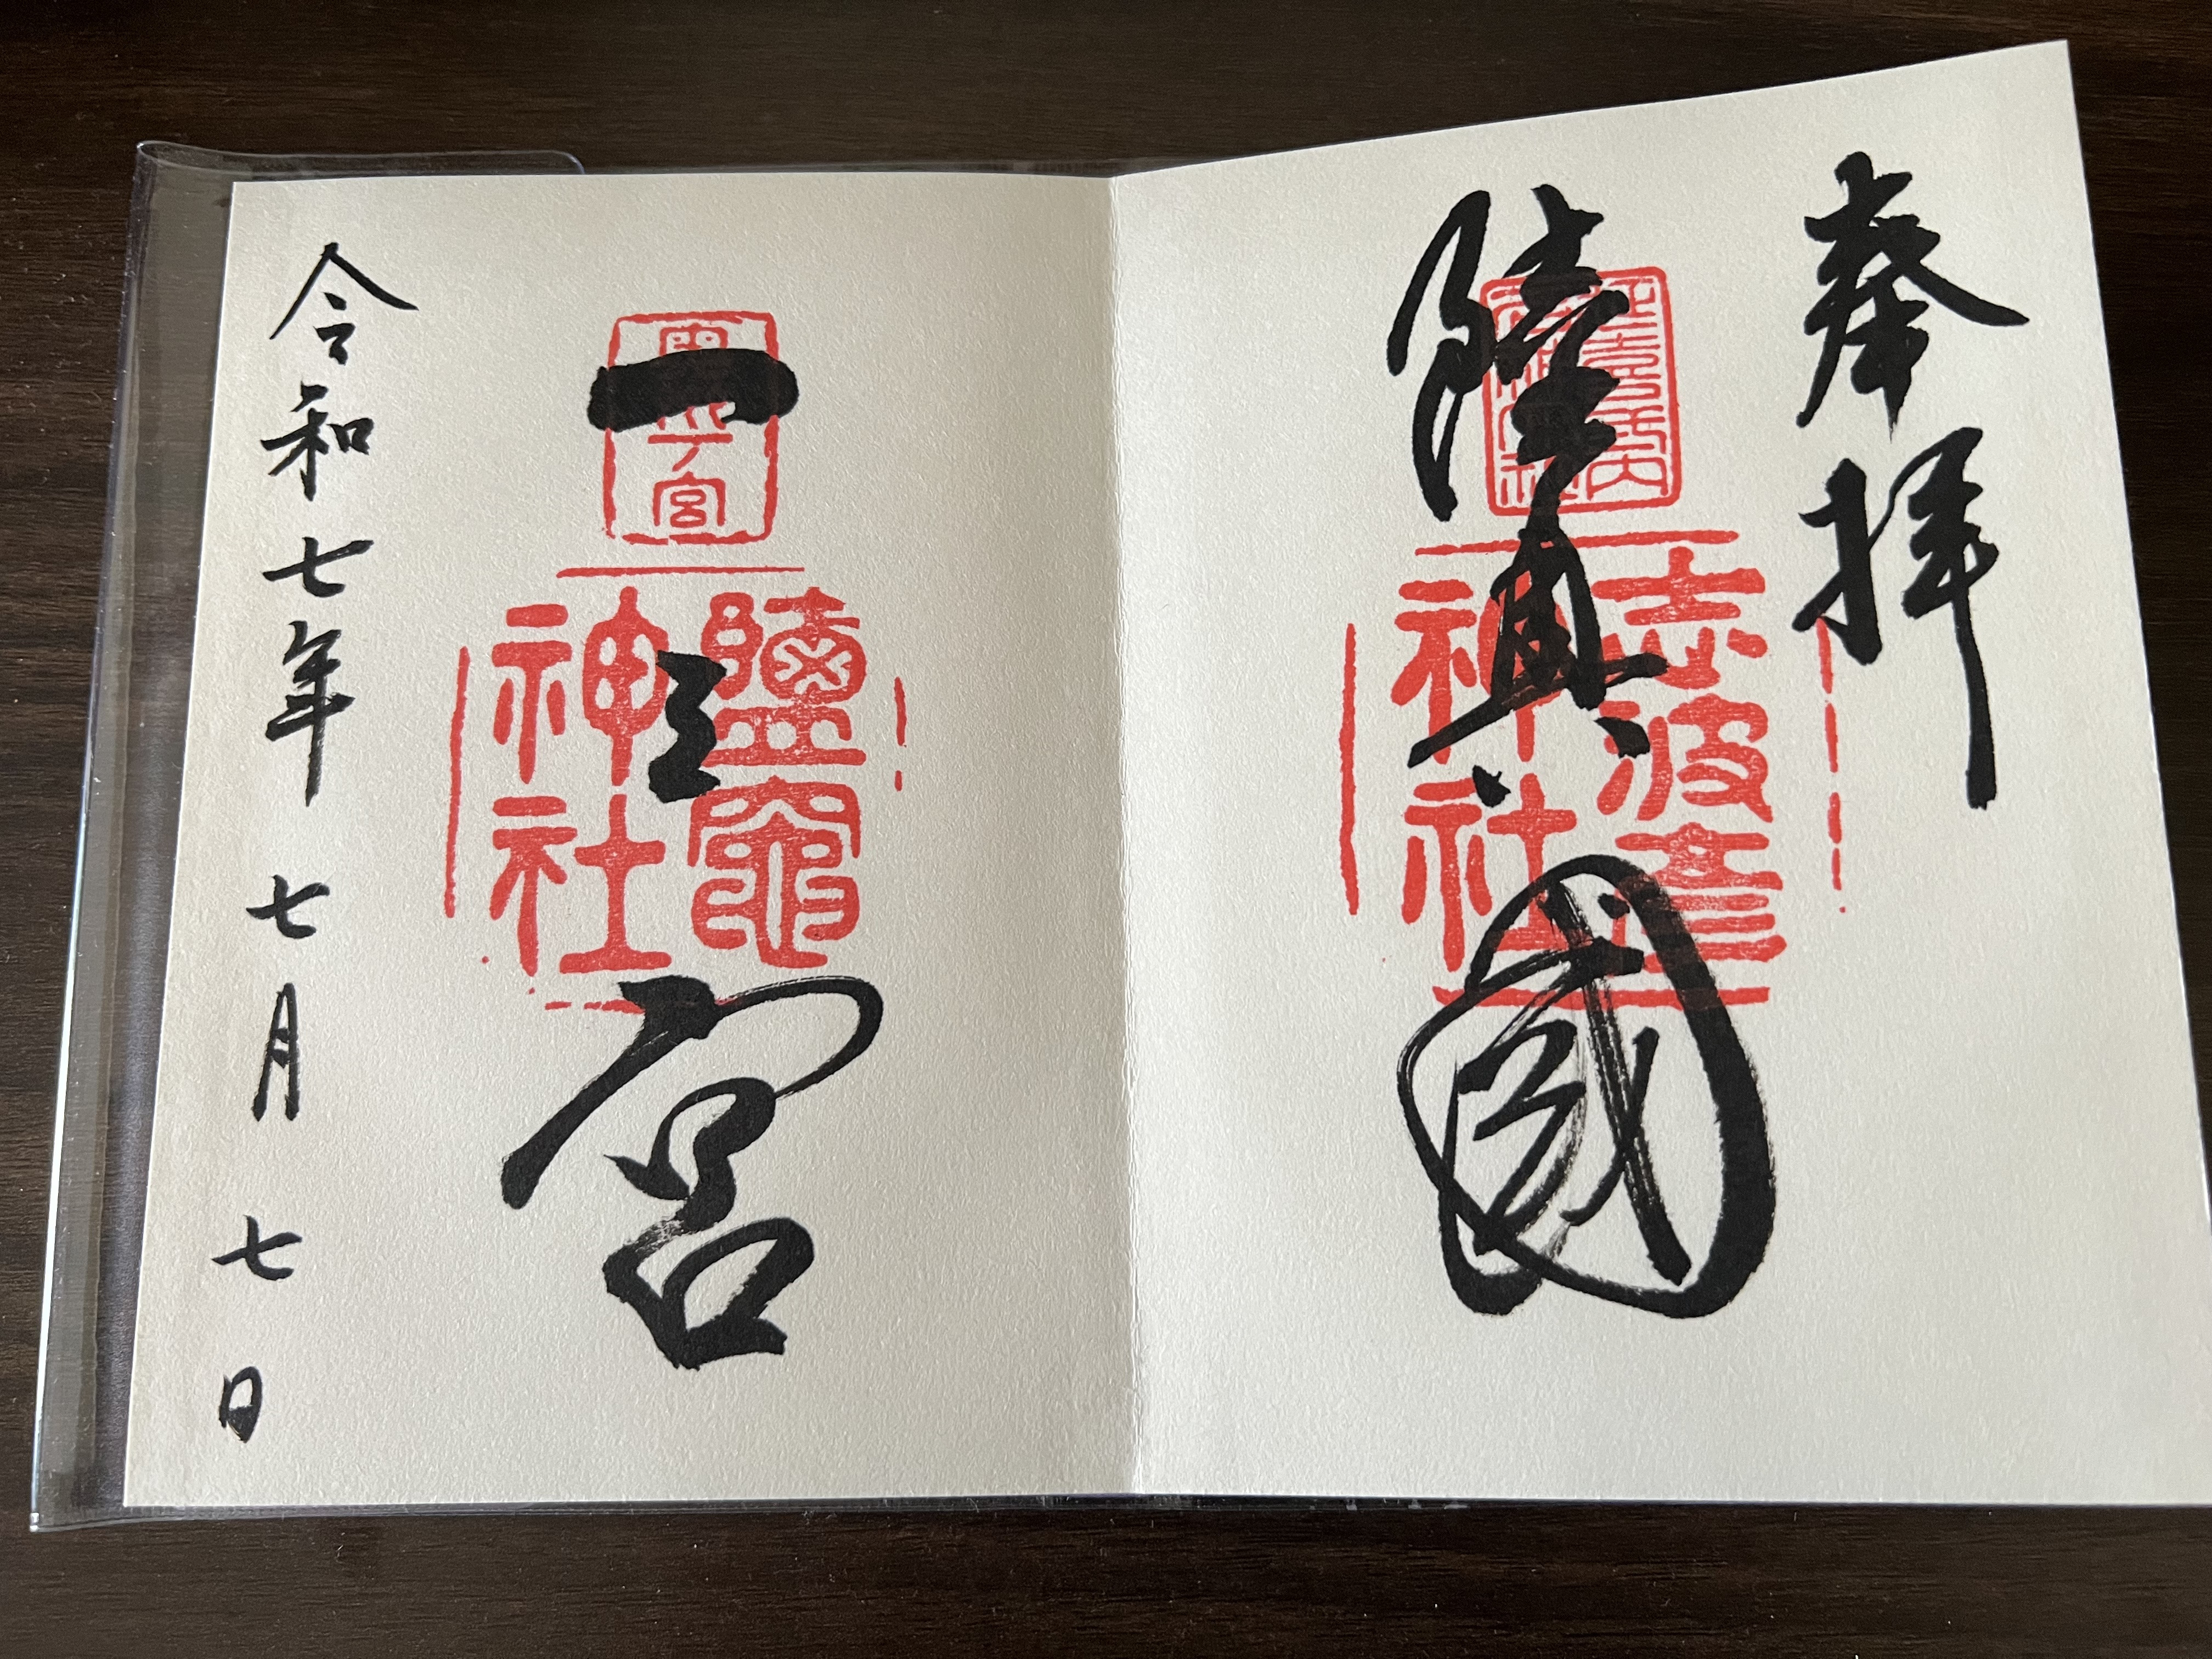 奉拝
陸奥國
志波彦
神社
一之宮
鹽竈
神社
令和七年 七月 七日